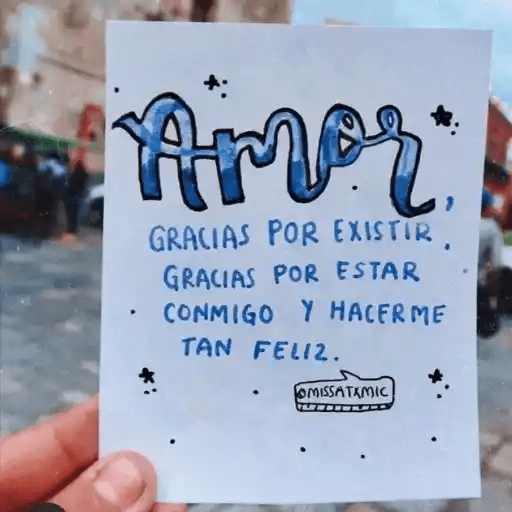 Amor,
GRACIAS POR EXISTIR.
GRACIAS POR ESTAR
CONMIGO Y HACERME
TAN FELIZ.
@MISSATXMIC